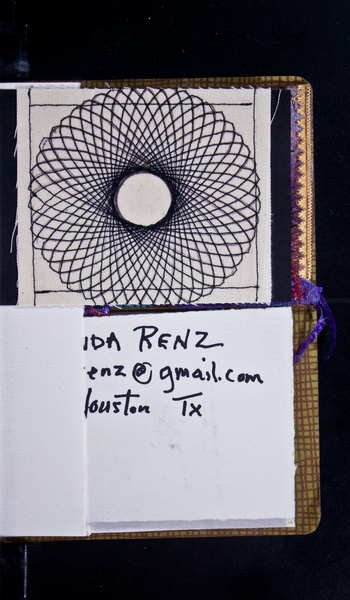 IDA RENZ
enz@gmail.com
Houston Tx